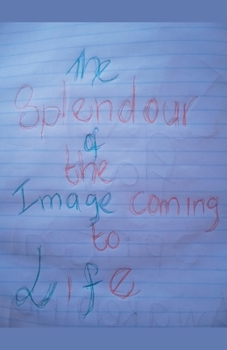 The
Splendour
of
the
Image coming
to
Life